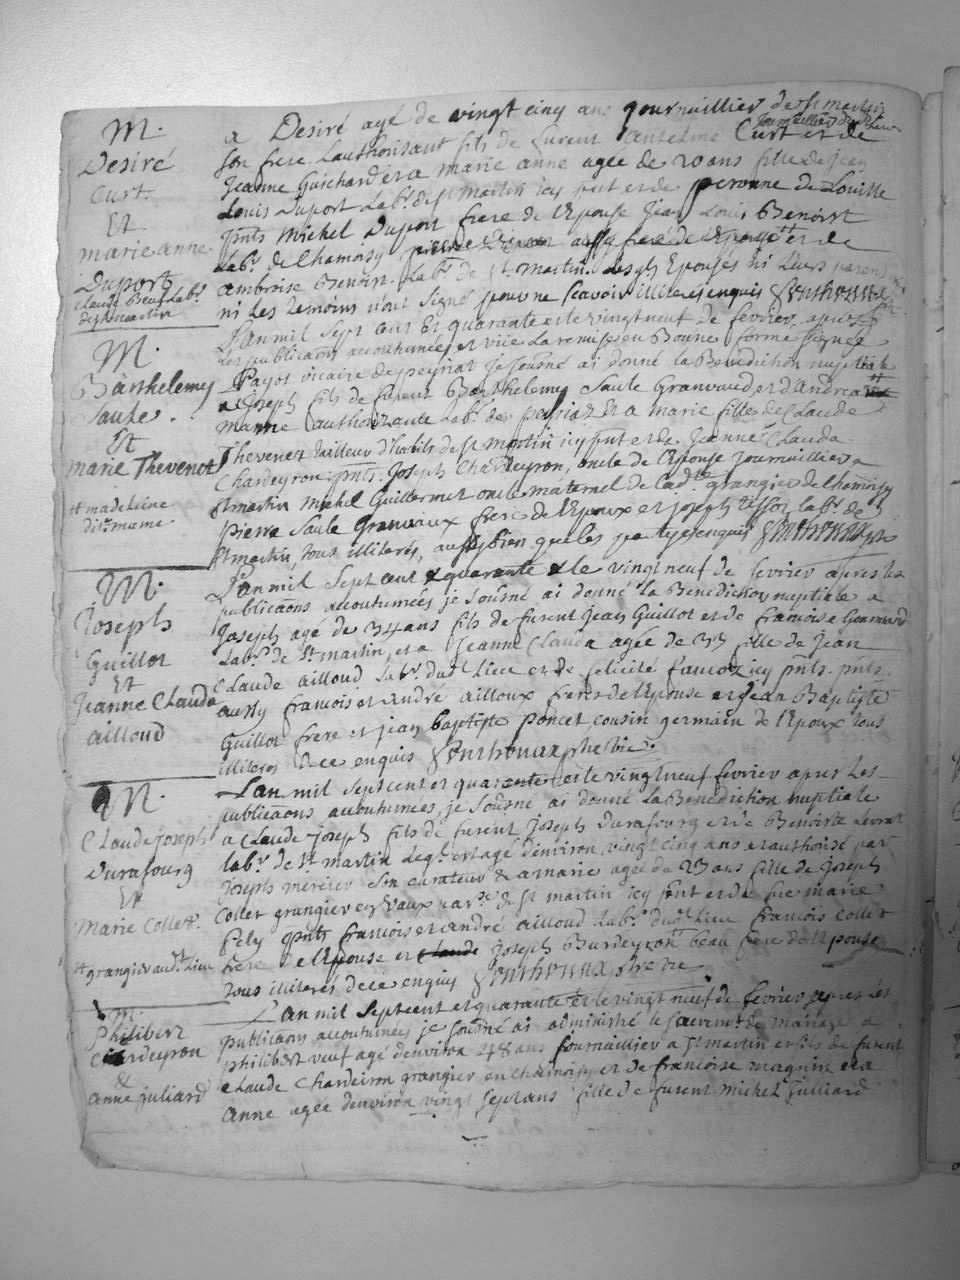 M.
Desiré
Curt.
Et
marie anne
Duport
claude Beus Lab.r
de st martin
a Desiré agé de vingt cinq ans journaillier de st martin
journaillier
son frere Lauthorisant fils de furent anselme Curt et de
Jeanne Guichard et a marie anne agée de 20 ans fille de jean
Louis Duport Lab.r de st Martin icy pnt et de peronne de Louille
pnts Michel Duport frere de l'Epouse Jean Louis Benoist
Lab.r de Chamoisy pierre Duport aussy frere de l'epouse et de
ambroise Benoit Lab.r de st martin. Lesqls Epouses ni Leurs parens
ni Les temoins n'ont signé pour ne scavoir illiterés enquis
M.
Barthelemy
saule.
Et
marie Thevenet
# madeleine
dit meme
L'an mil sept cent Et quarante et le vingt neuf de fevrier apres
Les publicaons accoutumées et vüe La remise en Bonne forme signée
Payot vicaire de peyriat Je sousné ai donné la Benediction nuptiale
a Joseph fils de furent Barthelemy Saule Granvaud et d'andrea
manne authorizante Lab.r de peyriat Et a marie fille de Claude
Thevenet tailleur d'habits de st Martin icy pnt et de Jeanne Claude
Chardeyron pnts. Joseph Chardeyron, oncle de l'Epouse journaillier a
st martin Michel Guillermet oncle maternel de lad.te grangier de Chamoisy
pierre Saule Granvaux frere de l'Epoux et joseph tissot lab.r de
st martin, tous illiterés, aussy bien que les partyes enquis
M.
Joseph
Guillot
Et
Jeanne Claude
ailloud
L'an mil sept cent & quarante & le vingt neuf de fevrier apres les
publicaons accoutumées je sousné ai donné la Benediction nuptiale a
Joseph agé de 34 ans fils de furent Jean Guillot et de francoise
Lab.r de St martin, et a Jeanne Claude agée de fille de Jean
Claude ailloud Lab.r dud.t Lieu et de felicité francoz icy pnts. pnts.
aussy francois et andré ailloux freres de l'Epouse et Jean Baptiste
Guillot frere et jean baptiste poncet cousin germain de l'Epoux tous
illiteres de ce enquis
M.
Claude joseph
durafourg
Et
Marie Collet.
# grangier aud.t Lieu
L'an mil sept cent et quarante et le vingt neuf fevrier apres Les
publicaons accoutumées, je sousné ai donné La Benediction nuptiale
a Claude Joseph fils de furent Joseph durafourg et de Benoite Levrat
lab.r de st martin Leql. est agé d'environ vingt cinq ans et authorisé par
joseph mercier son curateur & a marie agée de 23 ans fille de joseph
Collet grangier en Vaux par.se de st martin icy pnt et de fuë marie
Fely pnts francois et andré ailloud Lab.r dud.t Lieu francois Collet
frere de l'Epouse et claude Joseph Burdeyron # beau frere de l'Epouse
tous illiterés de ce enquis
M.
Philibert
Chardeyron
&
anne juliard
L'an mil Sept cent et quarante et le vingt neuf de fevrier apres les
publicaons accoutumées je sousné ai administré le sacrem.t de mariage a
philibert veuf agé d'environ 48 ans journaillier a st martin et fils de furent
claude Chardeiron grangier en chamoisy et de francoise maquin et a
anne agée d'environ vingt sept ans fille de furent Michel Juilliard